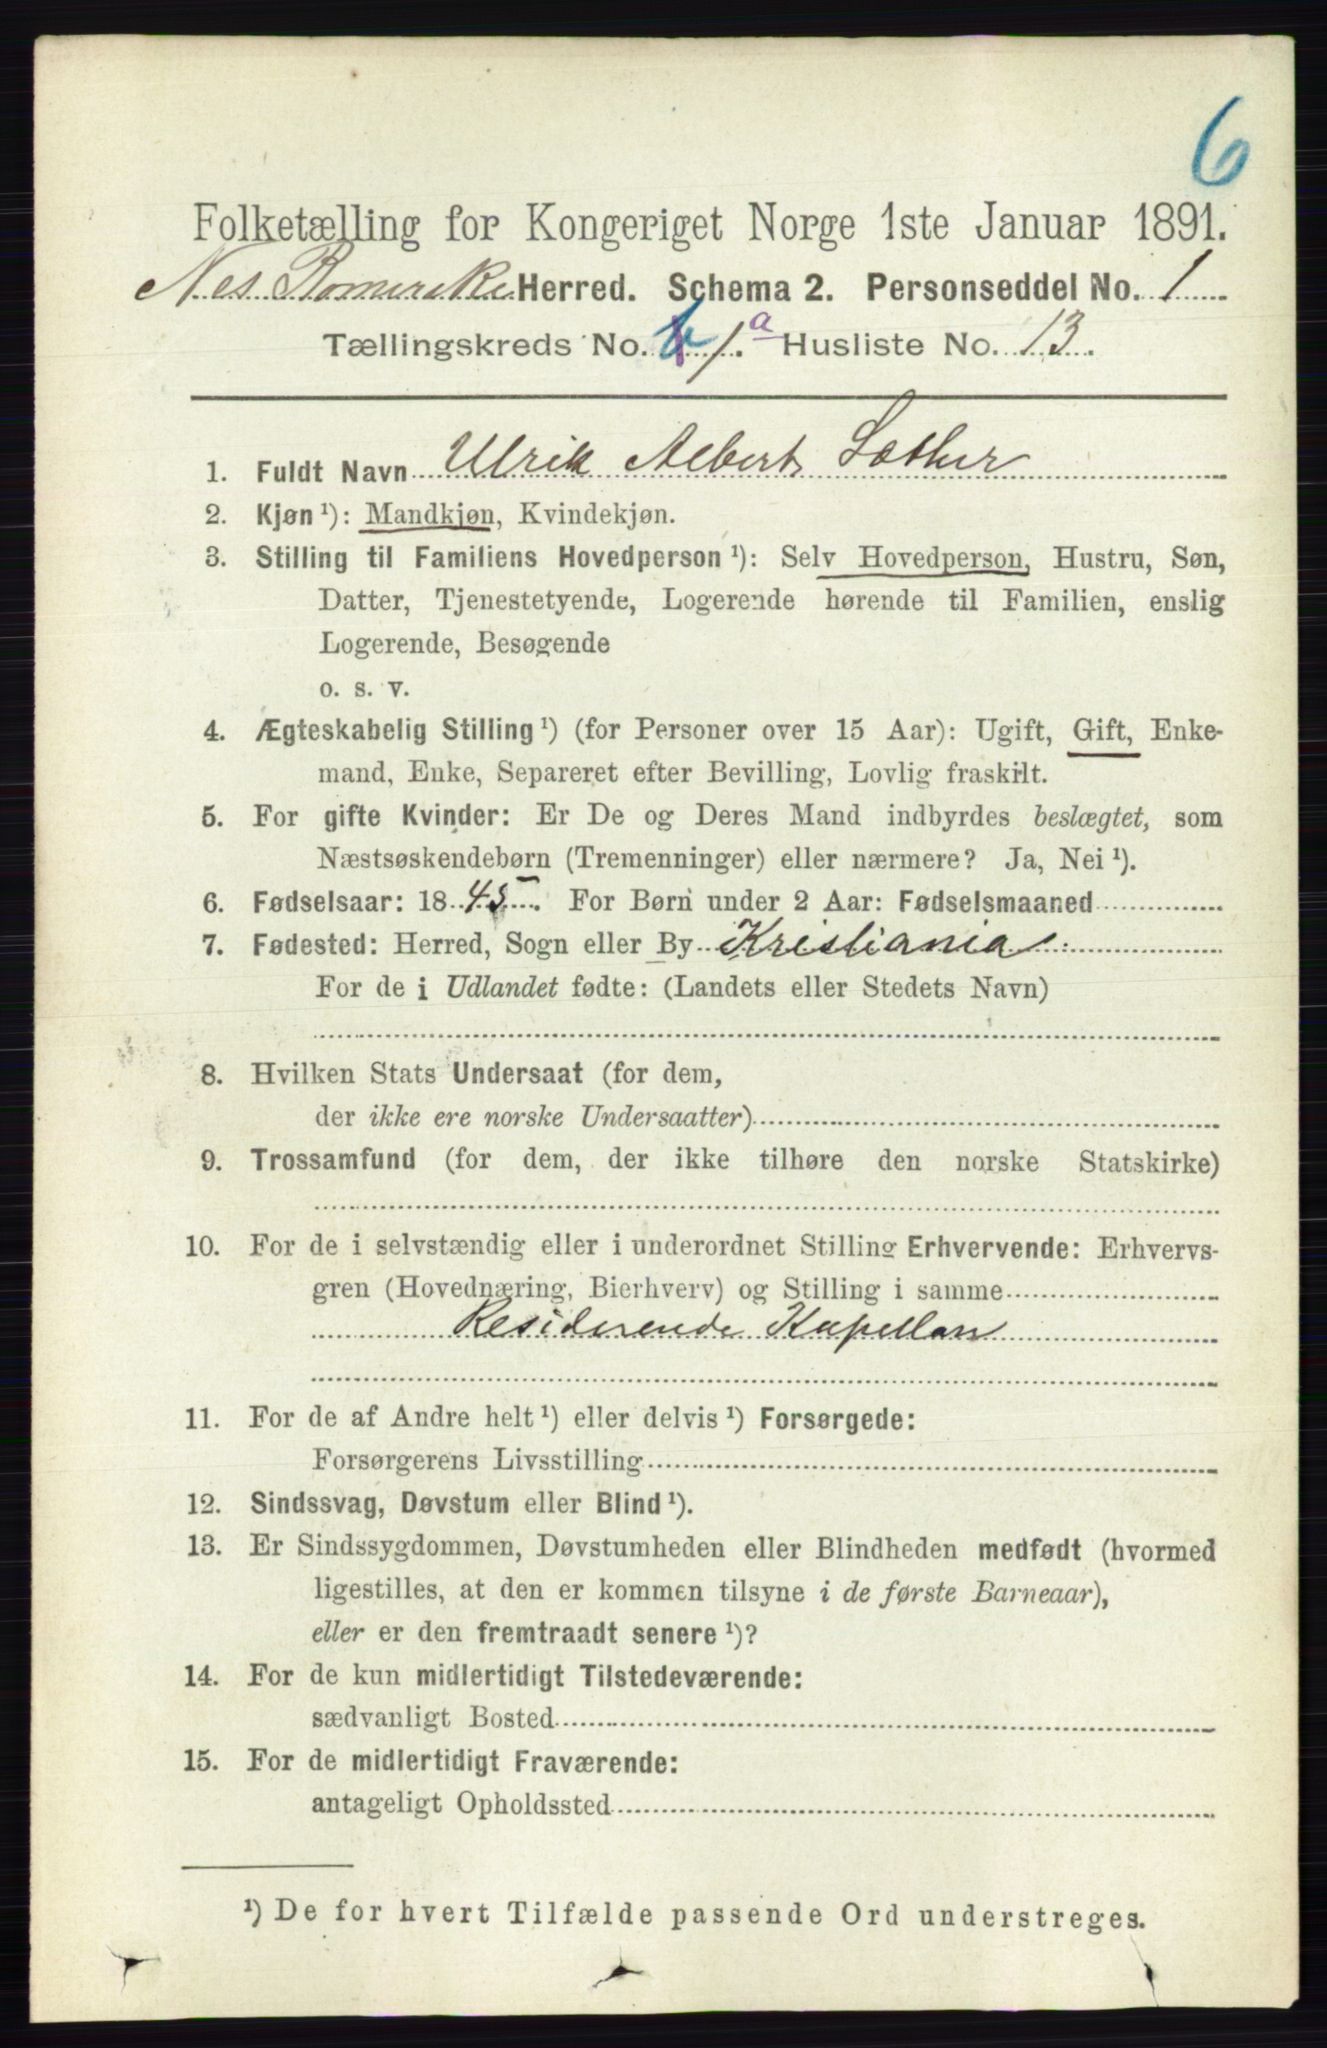 6
Folketælling for Kongeriget Norge 1ste Januar 1891.
Nes Romerike Herred. Schema 2. Personseddel No. 1
Tællingskreds No. 1.a Husliste No. 13.
1. Fuldt Navn Ulrik Albert
2. Kjøn¹): Mandkjøn, Kvindekjøn.
3. Stilling til Familiens Hovedperson¹): Selv Hovedperson, Hustru, Søn,
Datter, Tjenestetyende, Logerende hørende til Familien, enslig
Logerende, Besøgende
o. s. v.
4. Ægteskabelig Stilling¹) (for Personer over 15 Aar): Ugift, Gift, Enke-
mand, Enke, Separeret efter Bevilling, Lovlig fraskilt.
5. For gifte Kvinder: Er De og Deres Mand indbyrdes beslægtet, som
Næstsøskendebørn (Tremenninger) eller nærmere? Ja, Nei¹).
6. Fødselsaar: 1845. For Børn under 2 Aar: Fødselsmaaned
7. Fødested: Herred, Sogn eller By Kristiania.
For de i Udlandet fødte: (Landets eller Stedets Navn)
8. Hvilken Stats Undersaat (for dem,
der ikke ere norske Undersaatter)
9. Trossamfund (for dem, der ikke tilhøre den norske Statskirke)
10. For de i selvstændig eller i underordnet Stilling Erhvervende: Erhvervs-
gren (Hovednæring, Bierhverv) og Stilling i samme
Residerende Kapellan
11. For de af Andre helt¹) eller delvis¹) Forsørgede:
Forsørgerens Livsstilling
12. Sindssvag, Døvstum eller Blind¹).
13. Er Sindssygdommen, Døvstumheden eller Blindheden medfødt (hvormed
ligestilles, at den er kommen tilsyne i de første Barneaar),
eller er den fremtraadt senere¹)?
14. For de kun midlertidigt Tilstedeværende:
sædvanligt Bosted
15. For de midlertidigt Fraværende:
antageligt Opholdssted
¹) De for hvert Tilfælde passende Ord understreges.